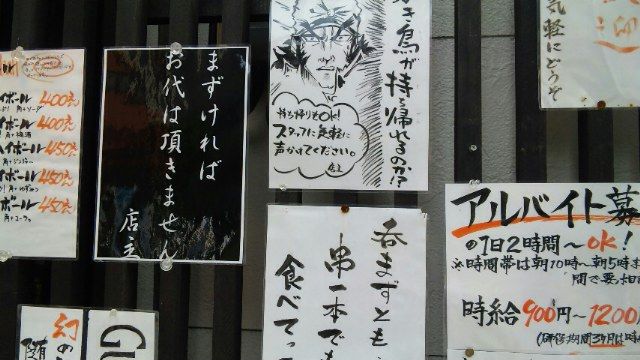 イボール 400え
イボール 400え
イボール 450え
イボール 450え
ボール 450え
まずければ
お代は頂きません
店主
鳥が
持ち帰れるのか!?
持ち帰りもOK!
スタッフに気軽に
声かけてください。
店主
気軽にどうぞ
アルバイト募
1日2時間〜OK!
※時間帯は朝10時〜朝5時ま
時給900円〜1200
呑まずとも
串一本でも
食べてっ
幻の
随
GU